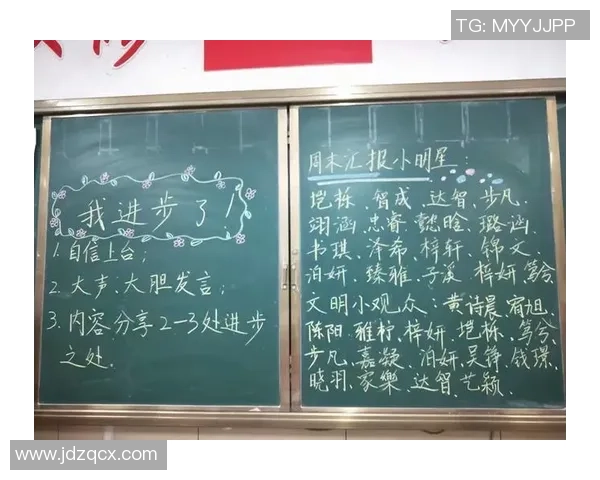 TG: MYYJJPP
我进步了！
1. 自信上台；
2. 大声、大胆发言；
3. 内容：分享2-3处进步
之处.
周末汇报小明星：
垲栋、智成、达智、步凡、
翊涵、忠睿、懿晗、璐涵、
书琪、泽希、梓轩、锦文、
泊妍、臻雅、子溪、梓妍、笃兮
文明小观众：黄诗晨、宥旭、
陈阳、雅柠、梓妍、垲栋、笃兮、
步凡、嘉凝、泊妍、吴铮、钱璟、
晓羽、家樂、达智、艺颖
www.jdzqcx.com